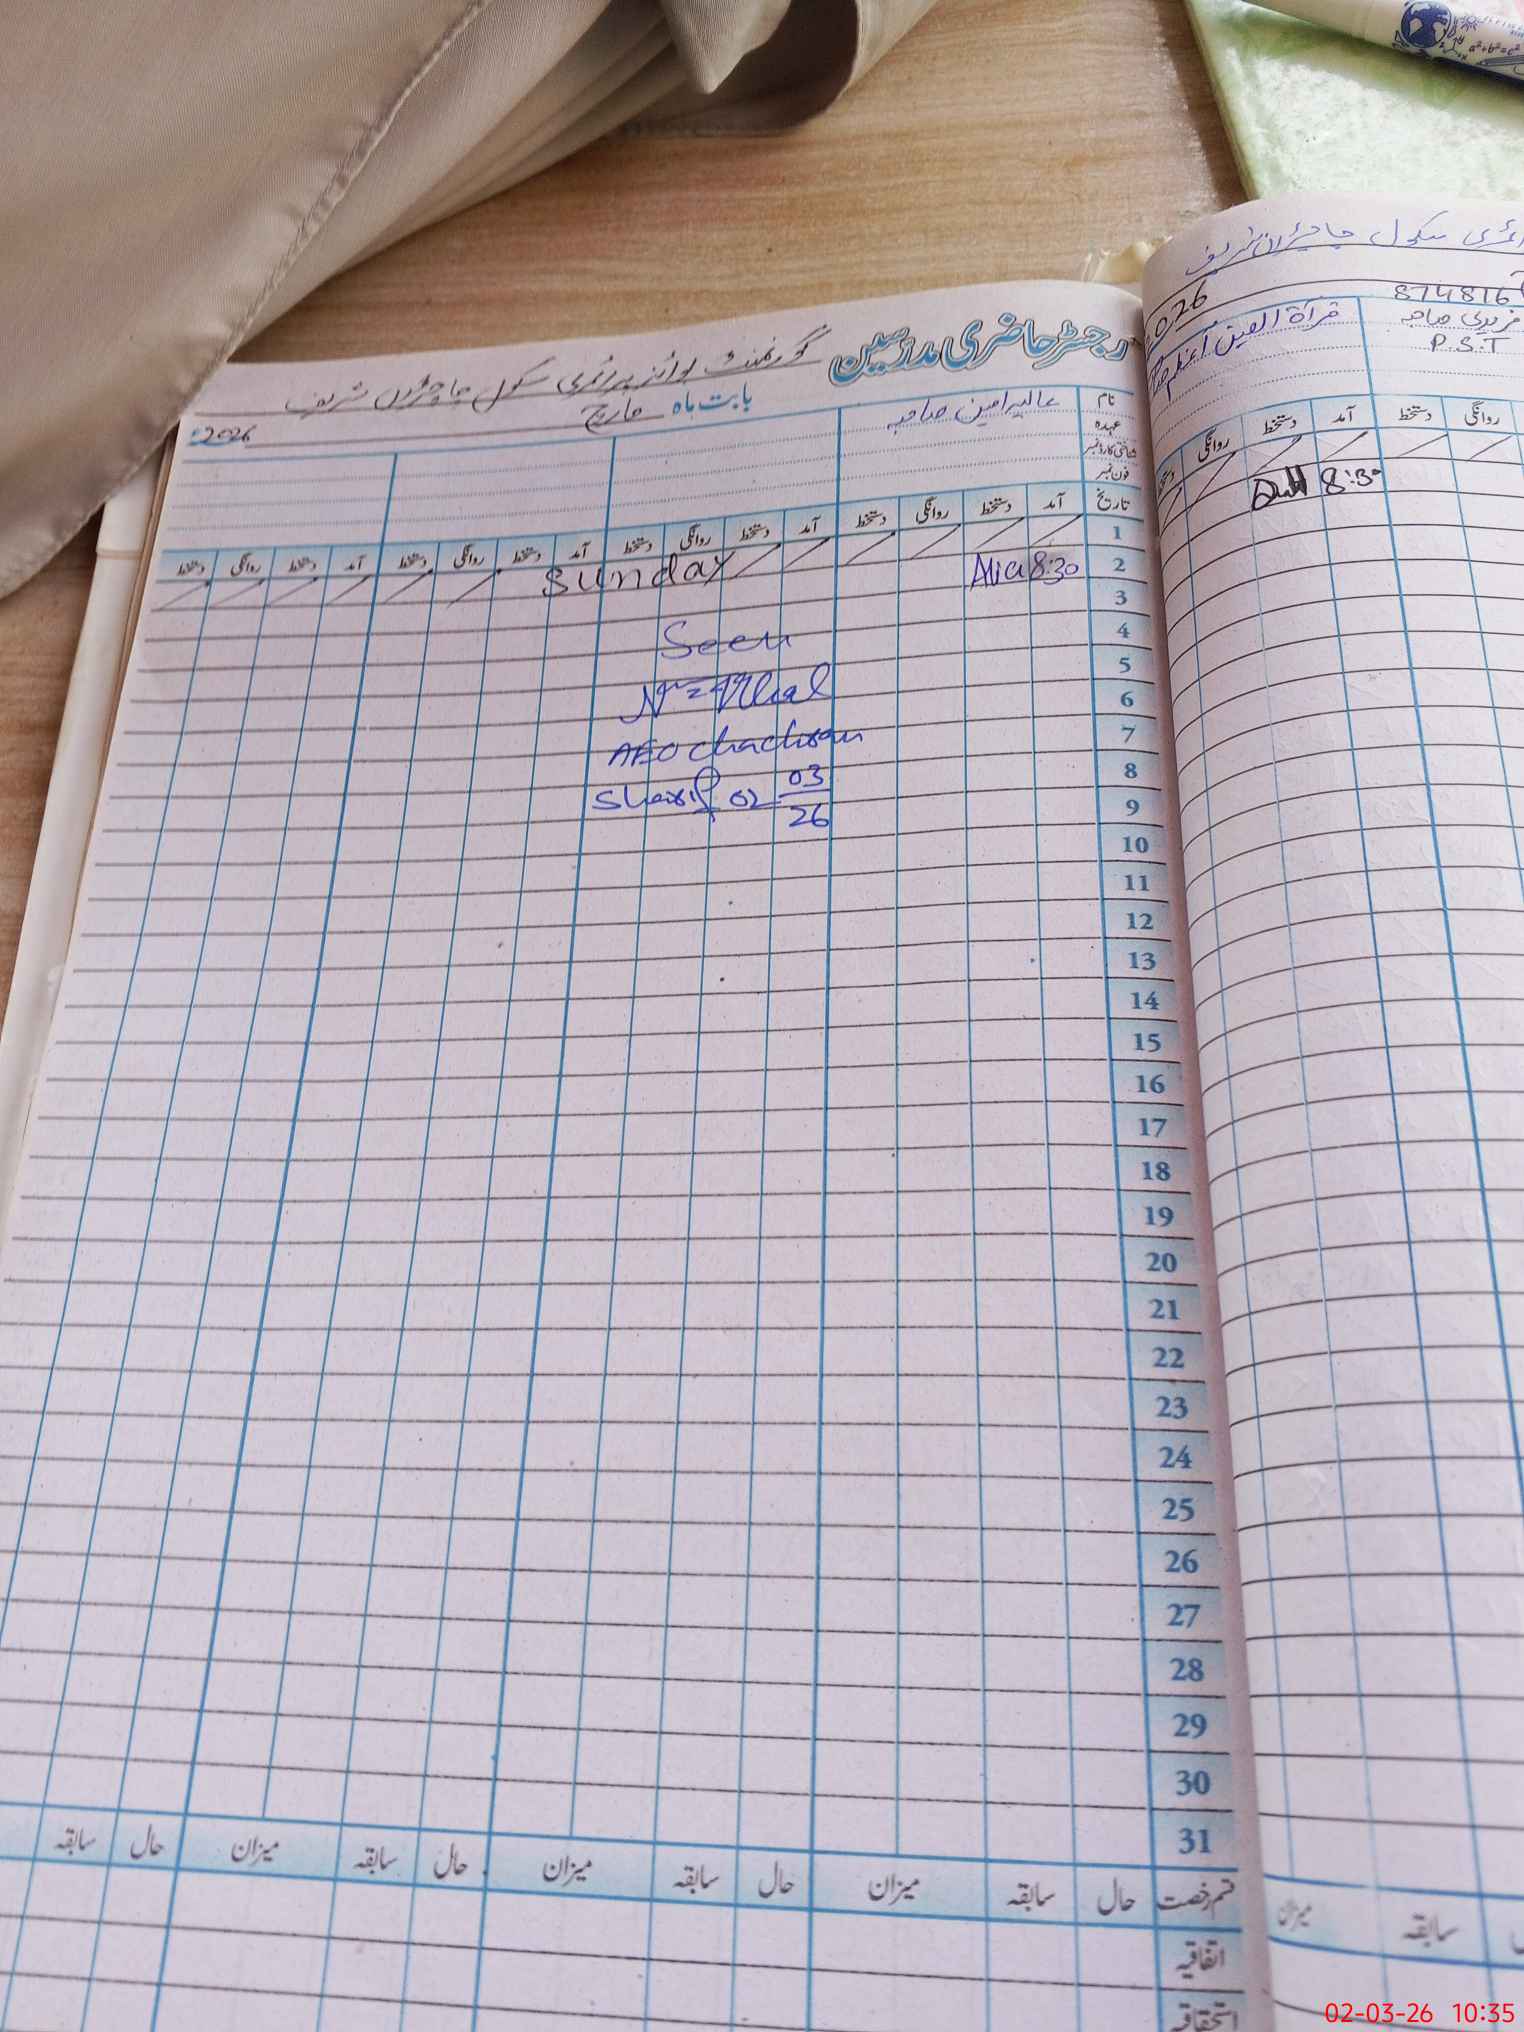 رجسٹر حاضری مدرسین گورنمنٹ بوائز پرائمری سکول چاچڑاں شریف
بابت ماہ مارچ 2026
نام
عہدہ
شناختی کارڈ نمبر
فون نمبر
تاریخ آمد دستخط روانگی دستخط آمد دستخط روانگی دستخط آمد دستخط روانگی دستخط آمد دستخط روانگی دستخط
1 Sunday
2 8:30 Alia
3
4
5
6
7
8
9
10
11
12
13
14
15
16
17
18
19
20
21
22
23
24
25
26
27
28
29
30
31
Seen
AEO chachran
Sharif 02 03
26
قسم رخصت حال سابقہ میزان حال سابقہ میزان حال سابقہ میزان حال سابقہ
اتفاقیہ
استحقاقیہ
سکول چاچڑاں شریف
026
874816
صاحبہ
P.S.T
قرأة العين اعظم
روانگی دستخط آمد دستخط روانگی
8:30
سابقہ میزان
a²+b²=c²
02-03-26 10:35